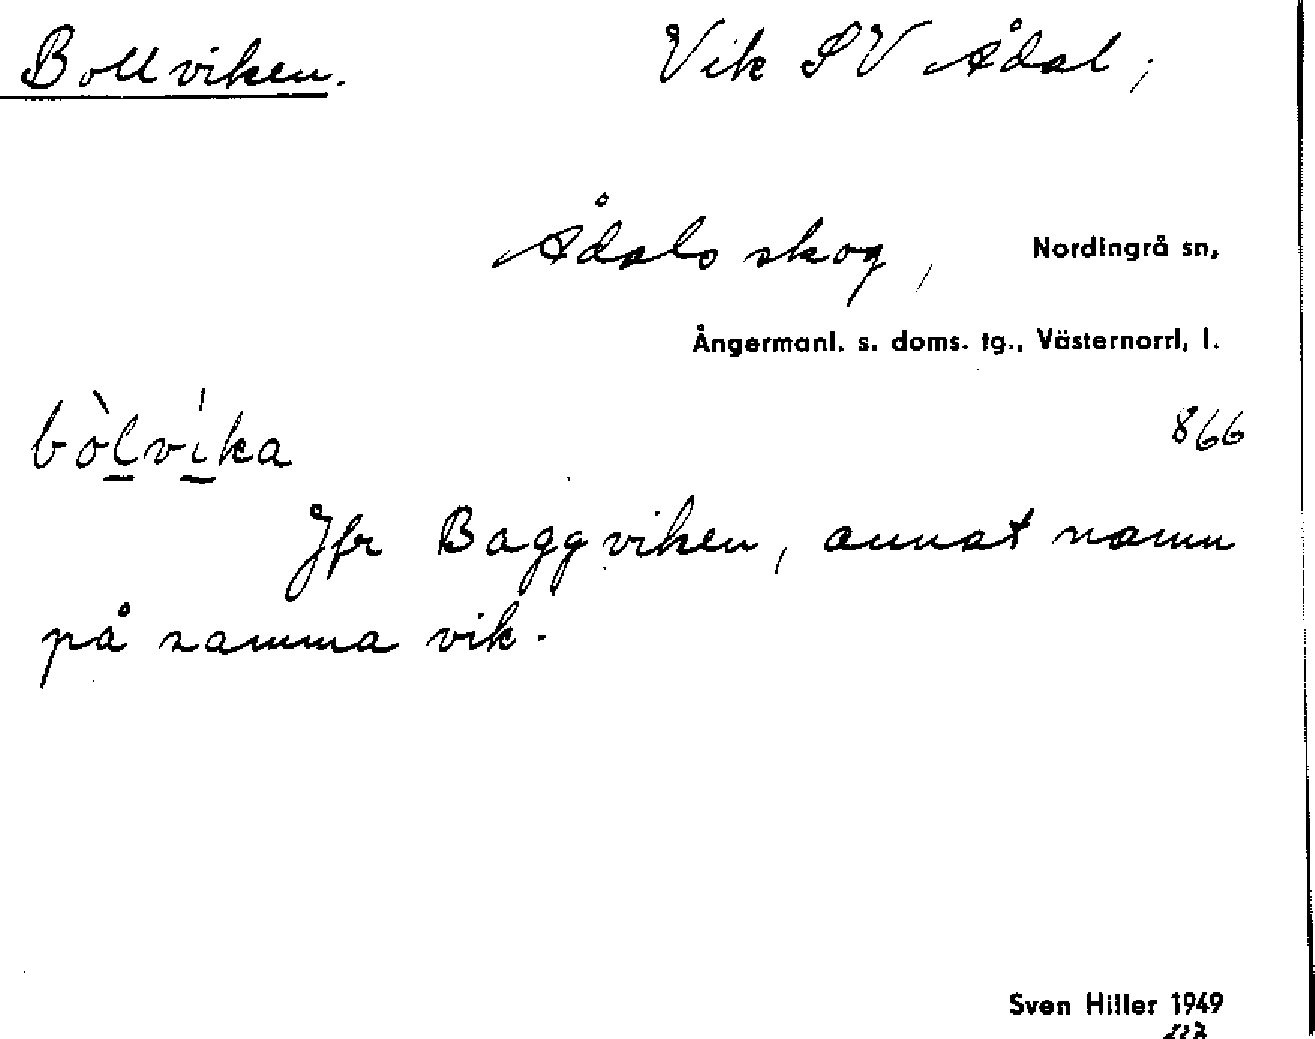 Bollviken. Vik SV Ådal,
Ådals skog, Nordingrå sn,
Ångermanl. s. doms. tg., Västernorrl, l.
bòl̲vi̲̍ka 866
Jfr Baggviken, annat namn
på samma vik.
Sven Hiller 1949